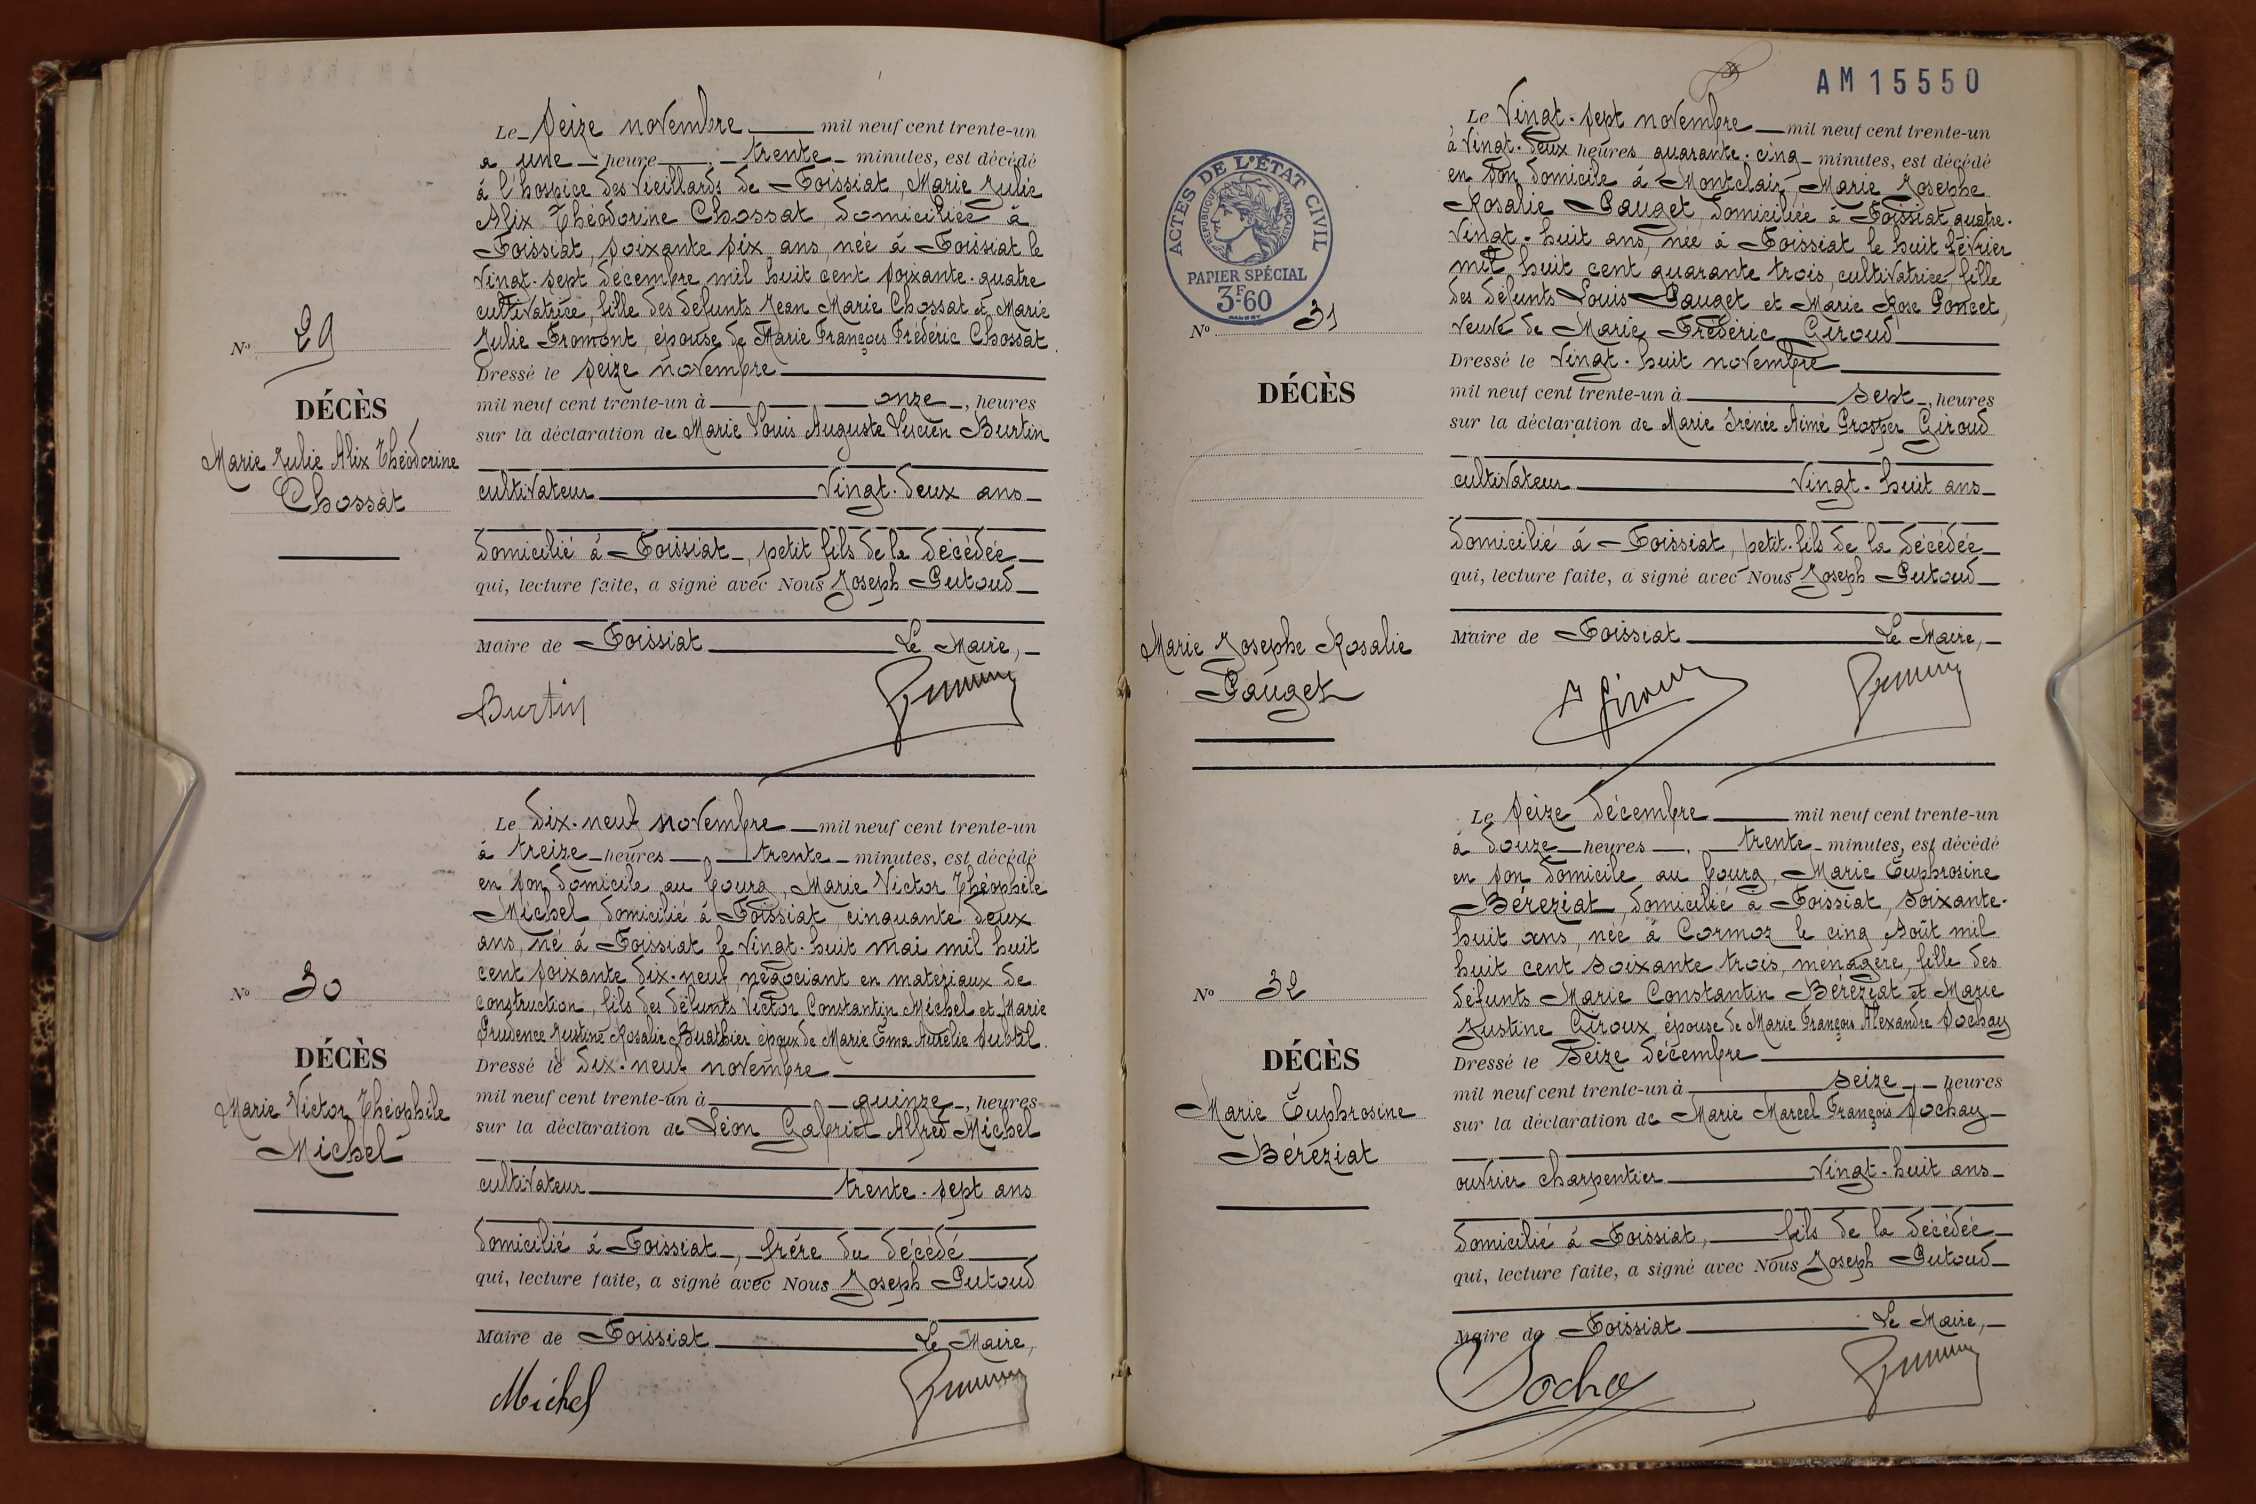 Le seize novembre mil neuf cent trente-un
à une heure trente minutes, est décédé
à l'hospice des vieillards de Foissiat, Marie Julie
Alix Théodorine Chossat, domiciliée à
Foissiat, soixante six ans, née à Foissiat le
vingt-sept décembre mil huit cent soixante-quatre
cultivatrice, fille des défunts Jean Marie Chossat et Marie
Julie Fromont, épouse de Marie François Frédéric Chossat.
Dressé le seize novembre
mil neuf cent trente-un à onze, heures
sur la déclaration de Marie Louis Auguste Lucien Burtin
cultivateur vingt-deux ans
domicilié à Foissiat, petit fils de la décédée
qui, lecture faite, a signé avec Nous Joseph Putoud
Maire de Foissiat Le Maire,
Burtin
No 29
DÉCÈS
Marie Julie Alix Théodorine
Chossat
Le dix-neuf novembre mil neuf cent trente-un
à treize heures trente minutes, est décédé
en son domicile au bourg, Marie Victor Théophile
Michel, domicilié à Foissiat, cinquante deux
ans, né à Foissiat le vingt-huit mai mil huit
cent soixante dix-neuf, négociant en matériaux de
construction, fils des défunts Victor Constantin Michel et Marie
Prudence Justine Rosalie Buathier époux de Marie Ema Aurélie Subtil.
Dressé le dix-neuf novembre
mil neuf cent trente-un à quinze, heures
sur la déclaration de Léon Gabriel Alfred Michel
cultivateur trente-sept ans
domicilié à Foissiat, frère du décédé
qui, lecture faite, a signé avec Nous Joseph Putoud
Maire de Foissiat Le Maire,
Michel
No 30
DÉCÈS
Marie Victor Théophile
Michel
AM 15550
Le vingt-sept novembre mil neuf cent trente-un
à vingt-deux heures quarante-cinq minutes, est décédé
en son domicile à Montclair, Marie Josephe
Rosalie Pauget, domiciliée à Foissiat quatre-
vingt-huit ans, née à Foissiat le huit février
mil huit cent quarante trois, cultivatrice, fille
des défunts Louis Pauget et Marie Rose Poncet,
veuve de Marie Frédéric Giroud
Dressé le vingt-huit novembre
mil neuf cent trente-un à sept, heures
sur la déclaration de Marie Irénée Aimé Prosper Giroud
cultivateur vingt-huit ans
domicilié à Foissiat, petit-fils de la décédée
qui, lecture faite, a signé avec Nous Joseph Putoud
Maire de Foissiat Le Maire,
Giroud
ACTES DE L'ÉTAT CIVIL
RÉPUBLIQUE FRANÇAISE
PAPIER SPÉCIAL
3F-60
No 31
DÉCÈS
Marie Josephe Rosalie
Pauget
Le seize décembre mil neuf cent trente-un
à douze heures trente minutes, est décédé
en son domicile au bourg, Marie Euphrosine
Béréziat, domicilié à Foissiat, soixante-
huit ans, née à Cormoz le cinq Août mil
huit cent soixante trois, ménagère, fille des
défunts Marie Constantin Béréziat et Marie
Justine Giroux, épouse de Marie François Alexandre Sochay
Dressé le seize décembre
mil neuf cent trente-un à seize heures
sur la déclaration de Marie Marcel François Sochay
ouvrier charpentier vingt-huit ans
domicilié à Foissiat, fils de la décédée
qui, lecture faite, a signé avec Nous Joseph Putoud
Maire de Foissiat Le Maire,
Sochay
No 32
DÉCÈS
Marie Euphrosine
Béréziat